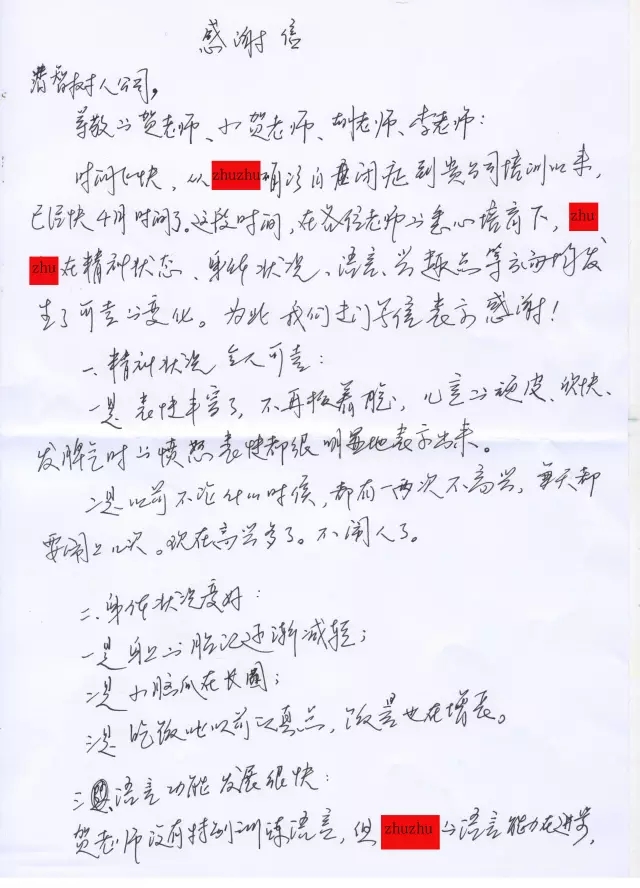 感谢信
潜智树人公司,
尊敬的贺老师、小贺老师、胡老师、李老师:
时间飞快,从zhuzhu确诊自闭症到贵公司培训以来,
已经快4月时间了。这段时间,在各位老师的悉心培育下,zhu
zhu在精神状态、身体状况、语言、兴趣点等方面均发
生了可喜的变化。为此我们专门写信表示感谢!
一、精神状况令人可喜:
一是表情丰富了,不再板着脸,儿童的顽皮、欢快、
发脾气时的愤怒表情都很明显地表示出来。
二是以前不论什么时候,都有一两次不高兴,每天都
要闹上几次。现在高兴多了。不闹人了。
二、身体状况变好:
一是身上的胎记逐渐减轻;
二是小脑瓜在长圆;
三是吃饭比以前认真点,饭量也在增长。
三、语言功能发展很快:
贺老师没有特别训练语言,但zhuzhu的语言能力在进步,